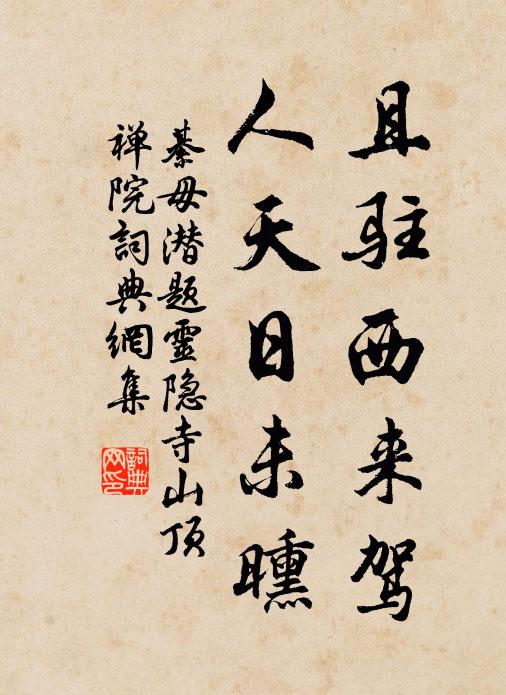 且驻西来驾
人天日未曛
綦毋潜题靈隐寺山顶
禅院詞典網集
詞典网印